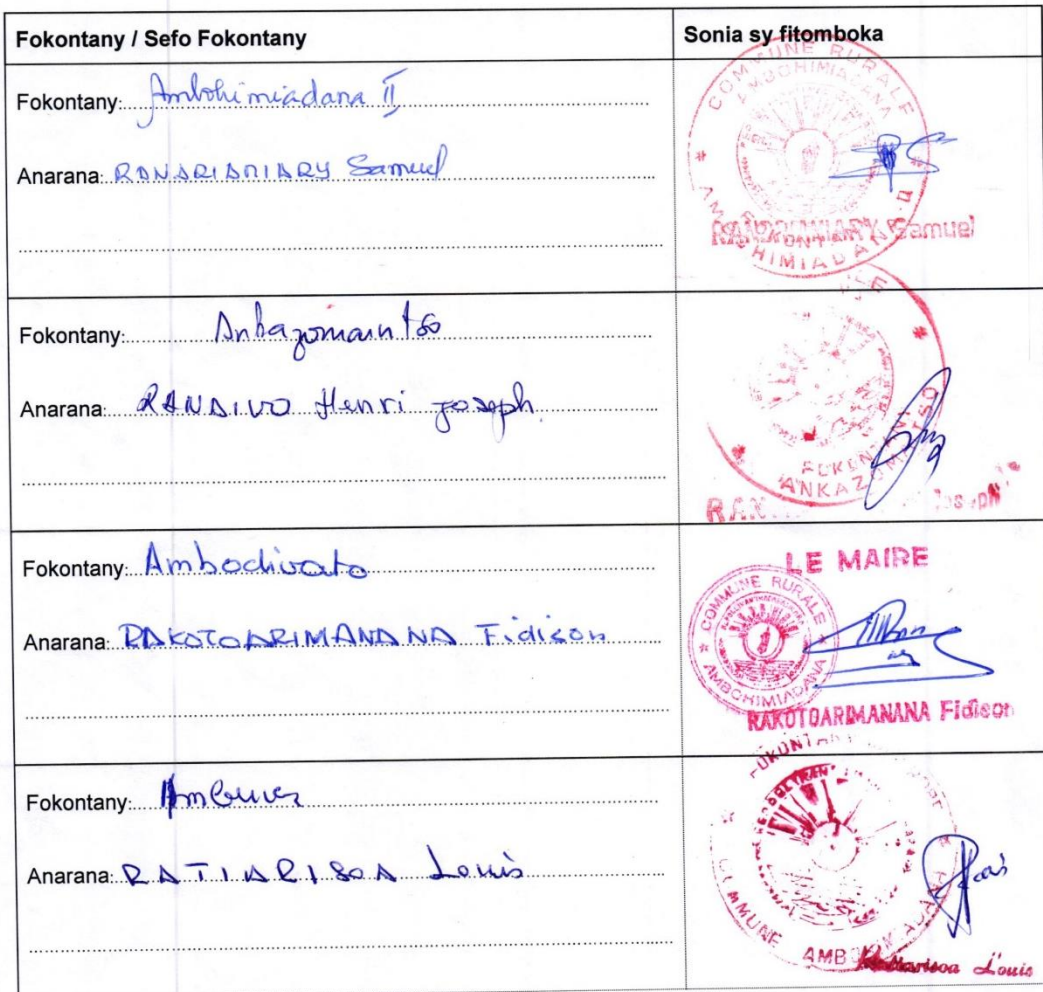 Fokontany / Sefo Fokontany
Sonia sy fitomboka
Fokontany: Ambohimiadana II
Anarana: RANARIANIARY Samuel
COMMUNE RURALE
AMBOHIMIADANA
AMBOHIMIADANA II
Samuel
Fokontany: Ankazomaintso
Anarana: RANAIVO Henri Joseph.
ANKAZOMAINTSO
Joseph
Fokontany: Ambodivato
Anarana: RAKOTOARIMANANA Fidison
LE MAIRE
COMMUNE RURALE
AMBOHIMIADANA
RAKOTOARIMANANA Fidison
Fokontany:
Anarana: RATIARISOA Louis
FOKONTANY
COMMUNE AMBOHIMIADANA
Ratiarisoa Louis